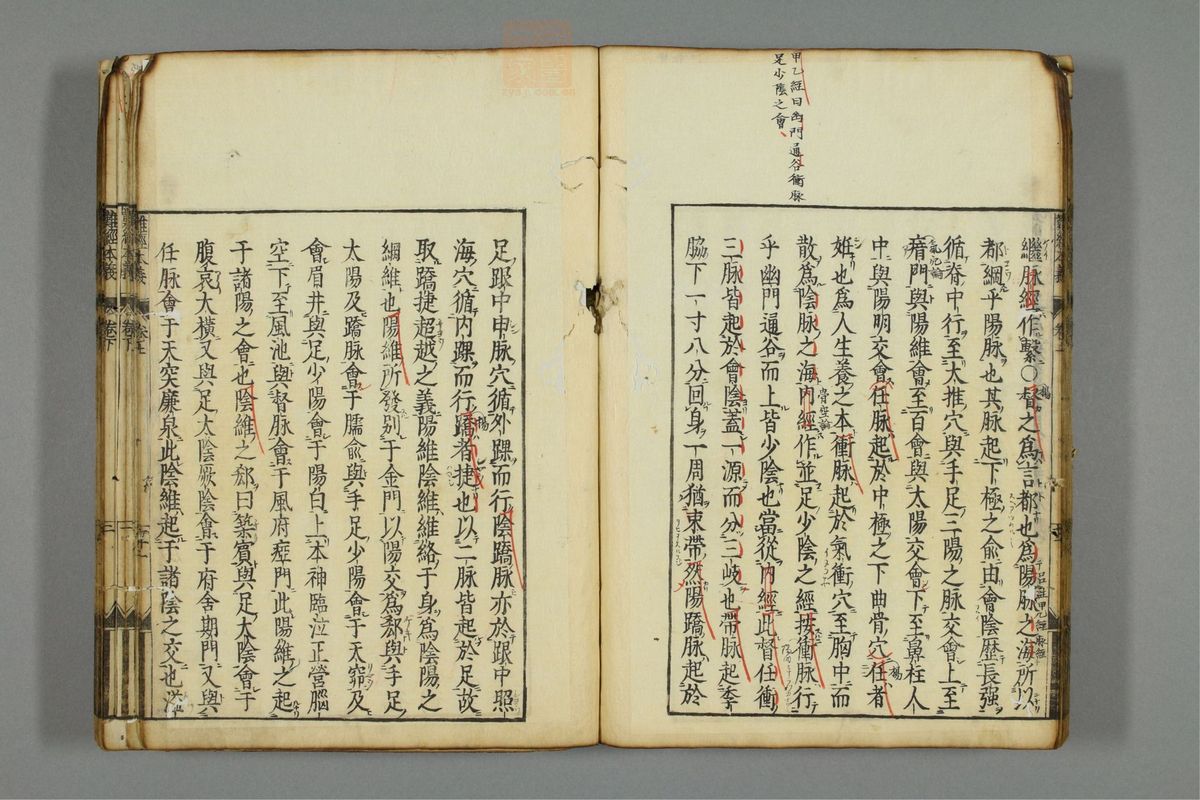 甲乙經曰幽門通谷衝脉
足少陰之會
繼脉經作繫○督之爲言都也爲陽脉之海所以
都綱乎陽脉也其脉起下極之兪由會陰歷長强
循脊中行至大椎穴與手足三陽之脉交會上至
瘖門與陽維會至百會與太陽交會下至鼻柱人
中與陽明交會任脉起於中極之下曲骨穴任者
姙也爲人生養之本衝脉起於氣衝穴至胸中而
散爲陰脉之海內經作並足少陰之經按衝脉行
乎幽門通谷而上皆少陰也當從內經此督任衝
三脉皆起於會陰蓋一源而分三岐也帶脉起季
脇下一寸八分回身一周猶束帶然陽蹻脉起於
足跟中申脉穴循外踝而行陰蹻脉亦於跟中照
海穴循內踝而行蹻者捷也以二脉皆起於足故
取蹻捷超越之義陽維陰維維絡于身爲陰陽之
綱維也陽維所發別于金門以陽交爲郄與手足
太陽及蹻脉會于臑兪與手足少陽會于天窌及
會肩井與足少陽會于陽白上本神臨泣正營腦
空下至風池與督脉會于風府瘂門此陽維之起
于諸陽之會也陰維之郄曰築賓與足太陰會于
腹哀大橫又與足太陰厥陰會于府舍期門又與
任脉會于天突廉泉此陰維起于諸陰之交也溢
難經本義
卷下